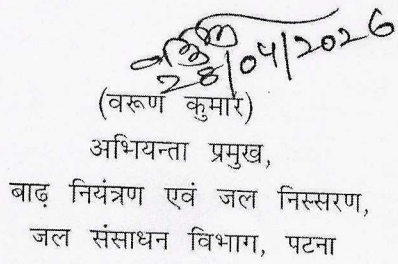 28/04/2026
(वरूण कुमार)
अभियन्ता प्रमुख,
बाढ़ नियंत्रण एवं जल निस्सरण,
जल संसाधन विभाग, पटना